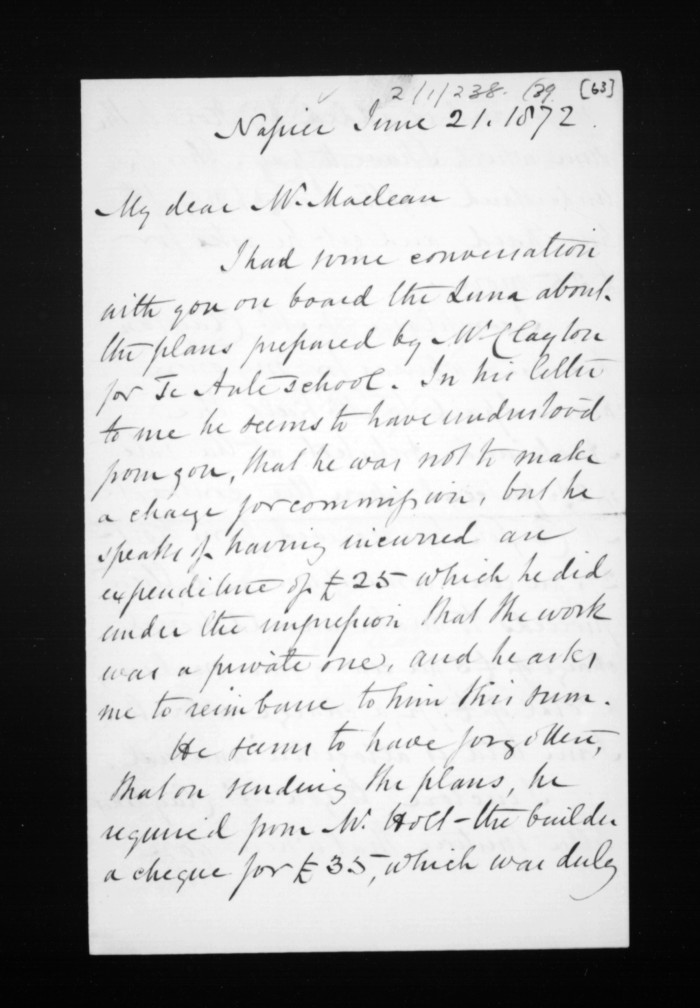 2/1/238. (39. [63]
Napier June 21. 1872.
My dear Mr. Maclean
I had some conversation
with you on board the Luna about
the plans prepared by Mr Clayton
for Te Aute school. In his letter
to me he seems to have understood
from you, that he was not to make
a charge for commission, but he
speaks of having incurred an
expenditure of £25 which he did
under the impression that the work
was a private one, and he asks
me to reimburse to him this sum.
He seems to have forgotten,
that on sending the plans, he
required from Mr. Holt - the builder
a cheque for £35, which was duly